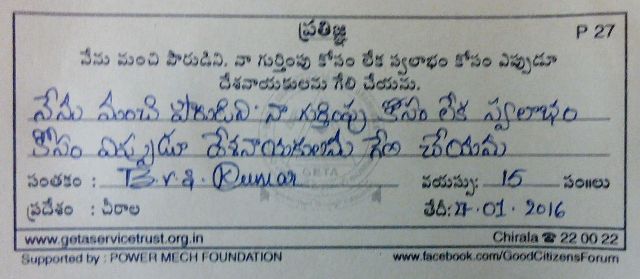 ప్రతిజ్ఞ
P 27
నేను మంచి పౌరుడిని. నా గుర్తింపు కోసం లేక స్వలాభం కోసం ఎప్పుడూ
దేశనాయకులను గేలి చేయను.
నేను మంచి పౌరుడిని. నా గుర్తింపు కోసం లేక స్వలాభం
కోసం ఎప్పుడూ దేశనాయకులను గేలి చేయను
సంతకం : Kumar వయస్సు: 15 సం॥లు
ప్రదేశం : చీరాల తేదీ: 27.01.2016
GETA
www.getaservicetrust.org.in Chirala ☎ 22 00 22
Supported by : POWER MECH FOUNDATION www.facebook.com/GoodCitizensForum